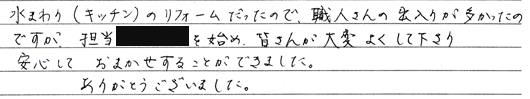 水まわり(キッチン)のリフォームだったので、職人さんの出入りが多かったの
ですが、担当を始め、皆さんが大変よくして下さり
安心して おまかせすることができました。
ありがとうございました。